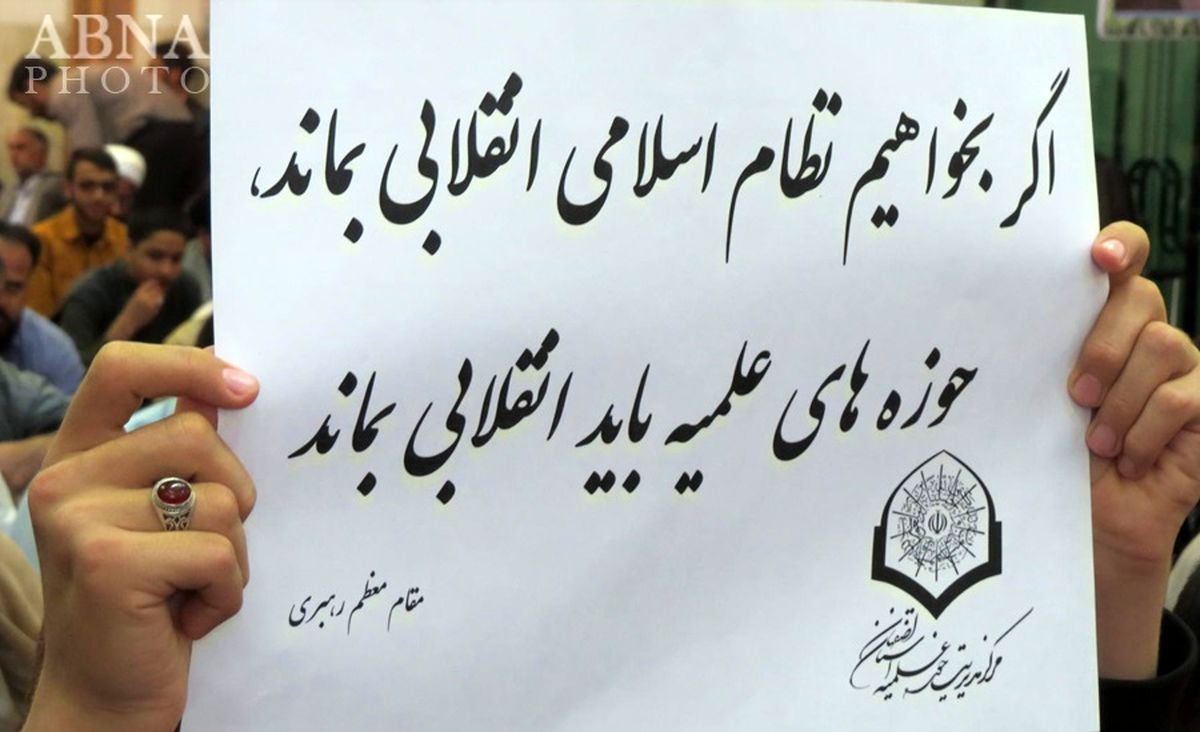 ABNA
PHOTO
اگر بخواهیم نظام اسلامی انقلابی بماند،
حوزه های علمیه باید انقلابی بماند
مقام معظم رهبری
مرکز مدیریت حوزه علمیه استان اصفهان